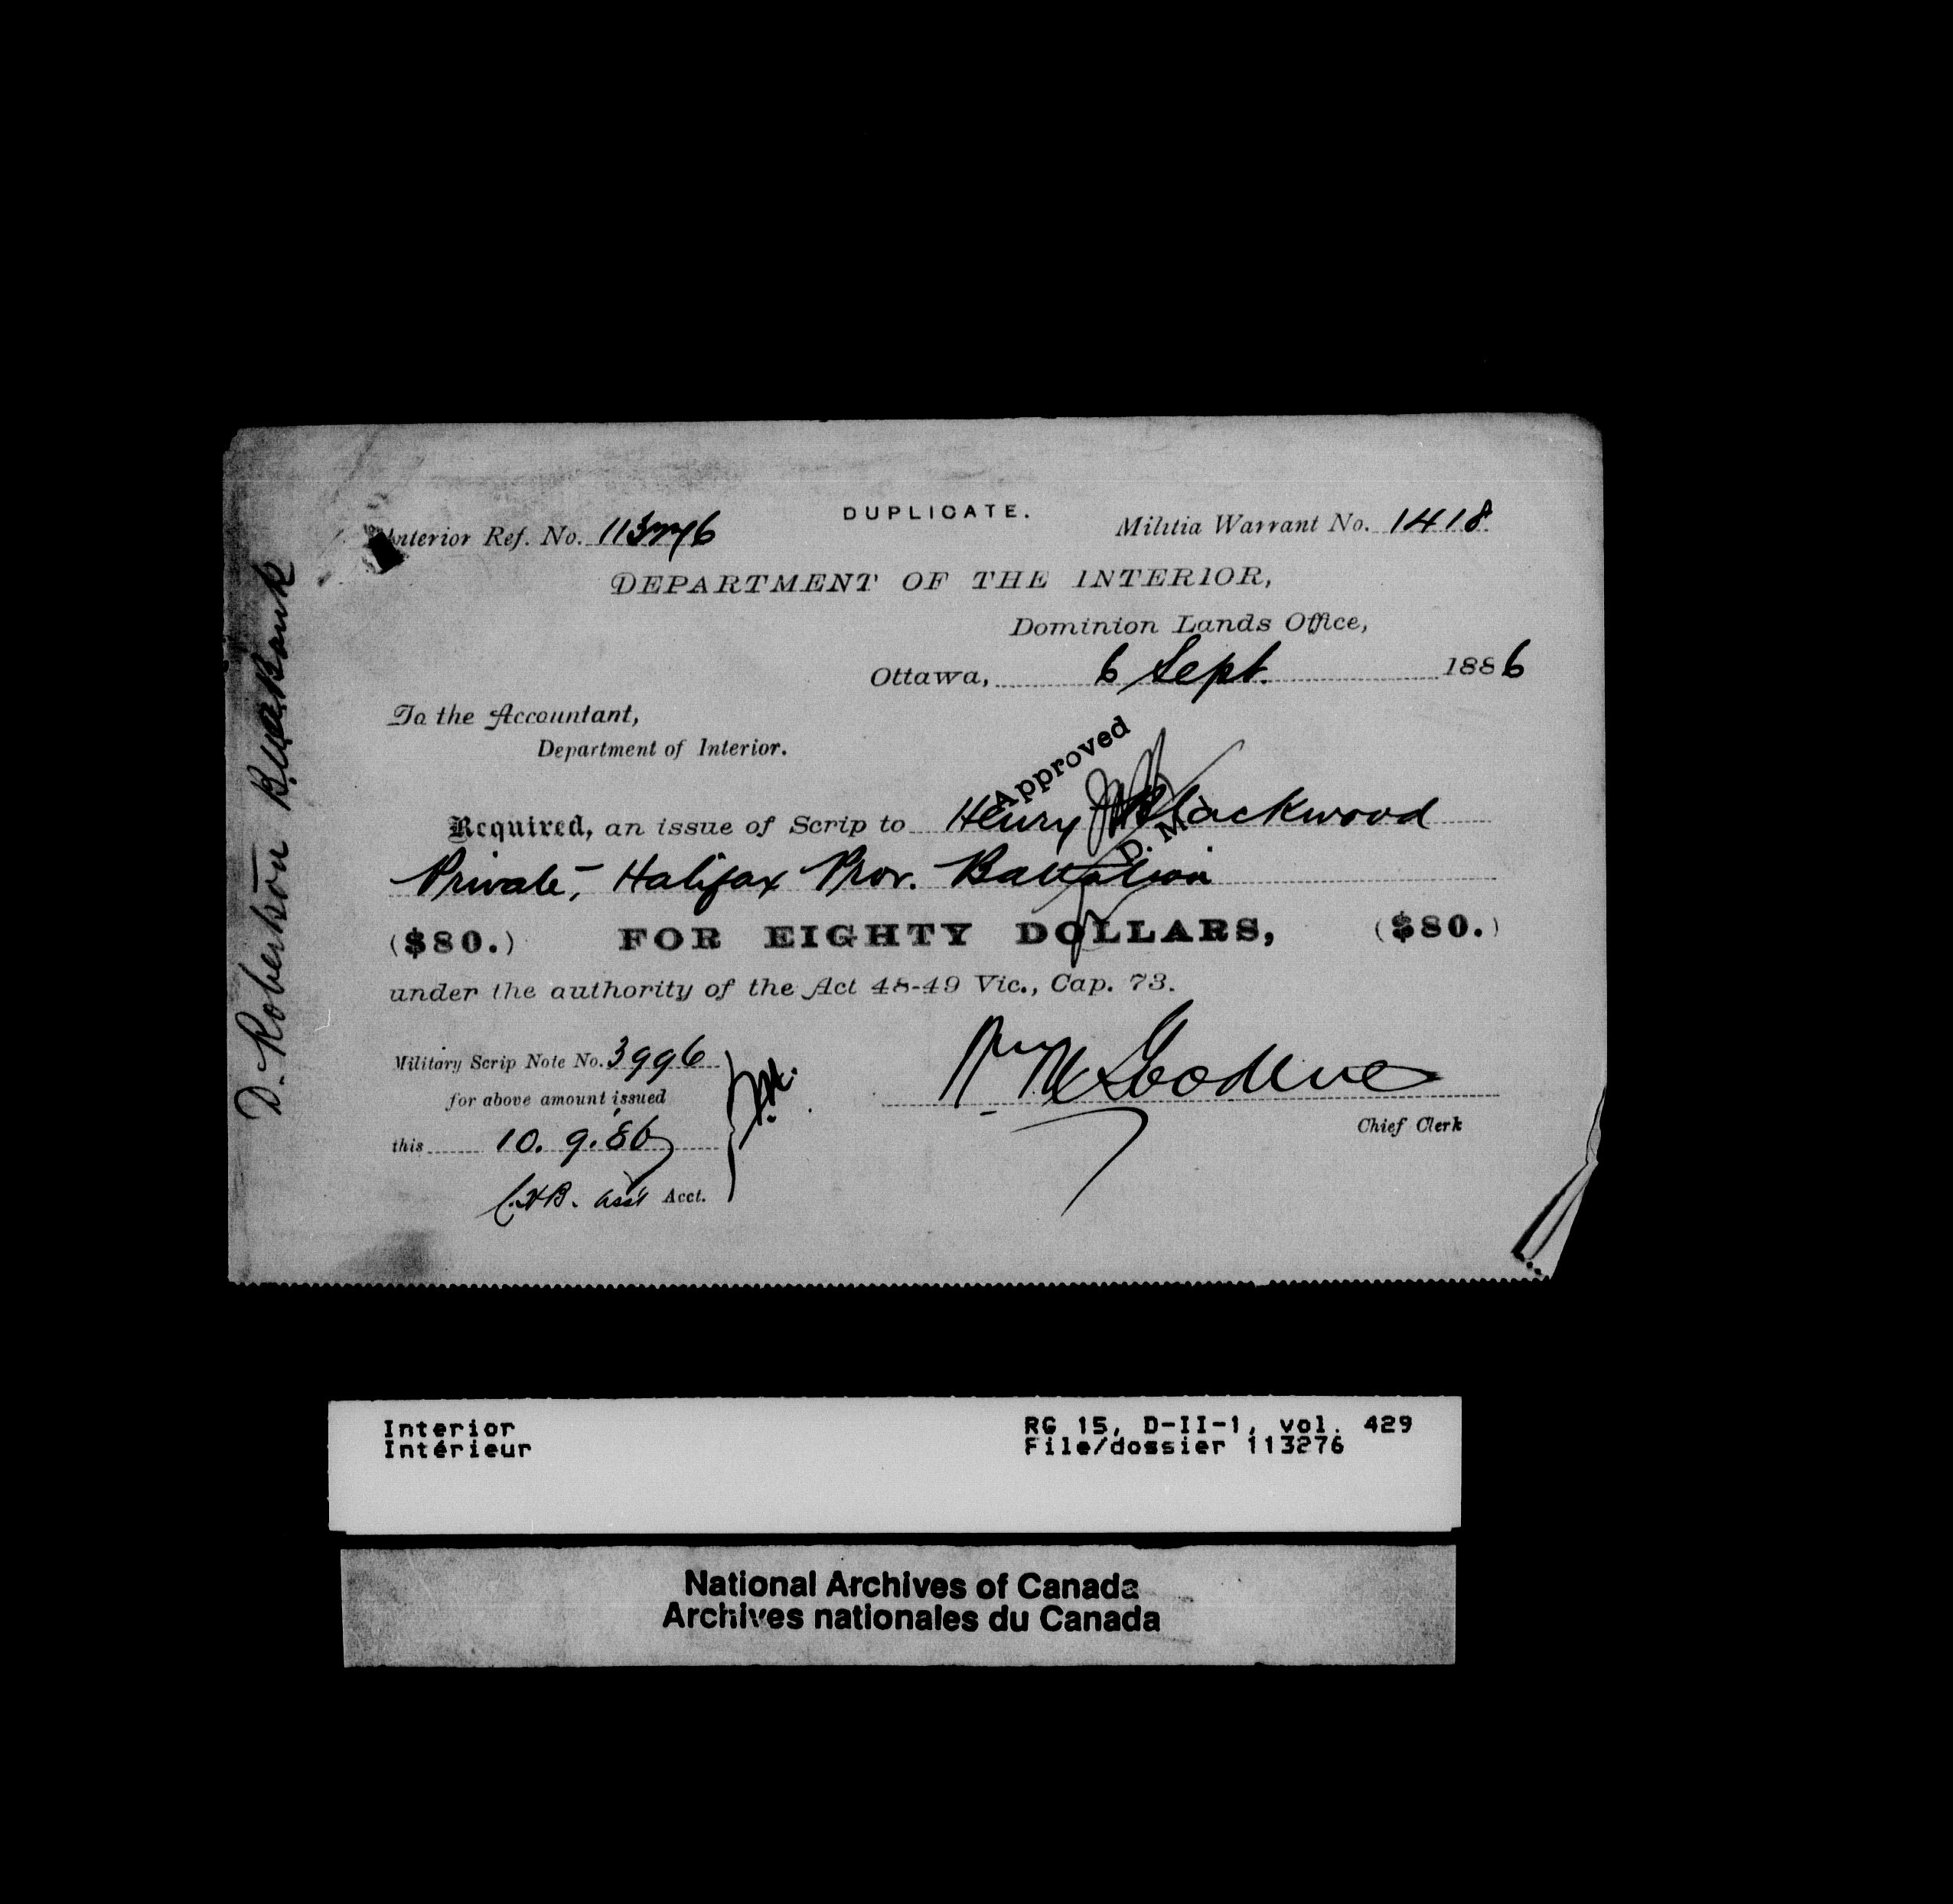 DUPLICATE.
Interior Ref. No. 113276
Militia Warrant No. 1418
DEPARTMENT OF THE INTERIOR,
Dominion Lands Office,
Ottawa, 6 Sept. 1886
To the Accountant,
Department of Interior.
Approved
D. M.
Required, an issue of Scrip to Henry Blackwood
Private, Halifax Prov. Battalion
($80.) FOR EIGHTY DOLLARS, ($80.)
under the authority of the Act 48-49 Vic., Cap. 73.
Military Scrip Note No. 3996
for above amount issued
this 10.9.86
C.H.B. Asst Acct.
Chief Clerk
D. Robertson
Interior
Intérieur
RG 15, D-II-1, vol. 429
File/dossier 113276
National Archives of Canada
Archives nationales du Canada